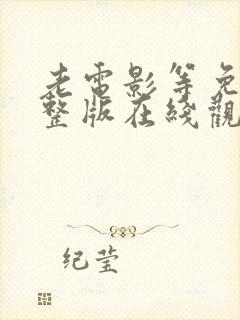 老電影等免
整版在綫觀
纪莹